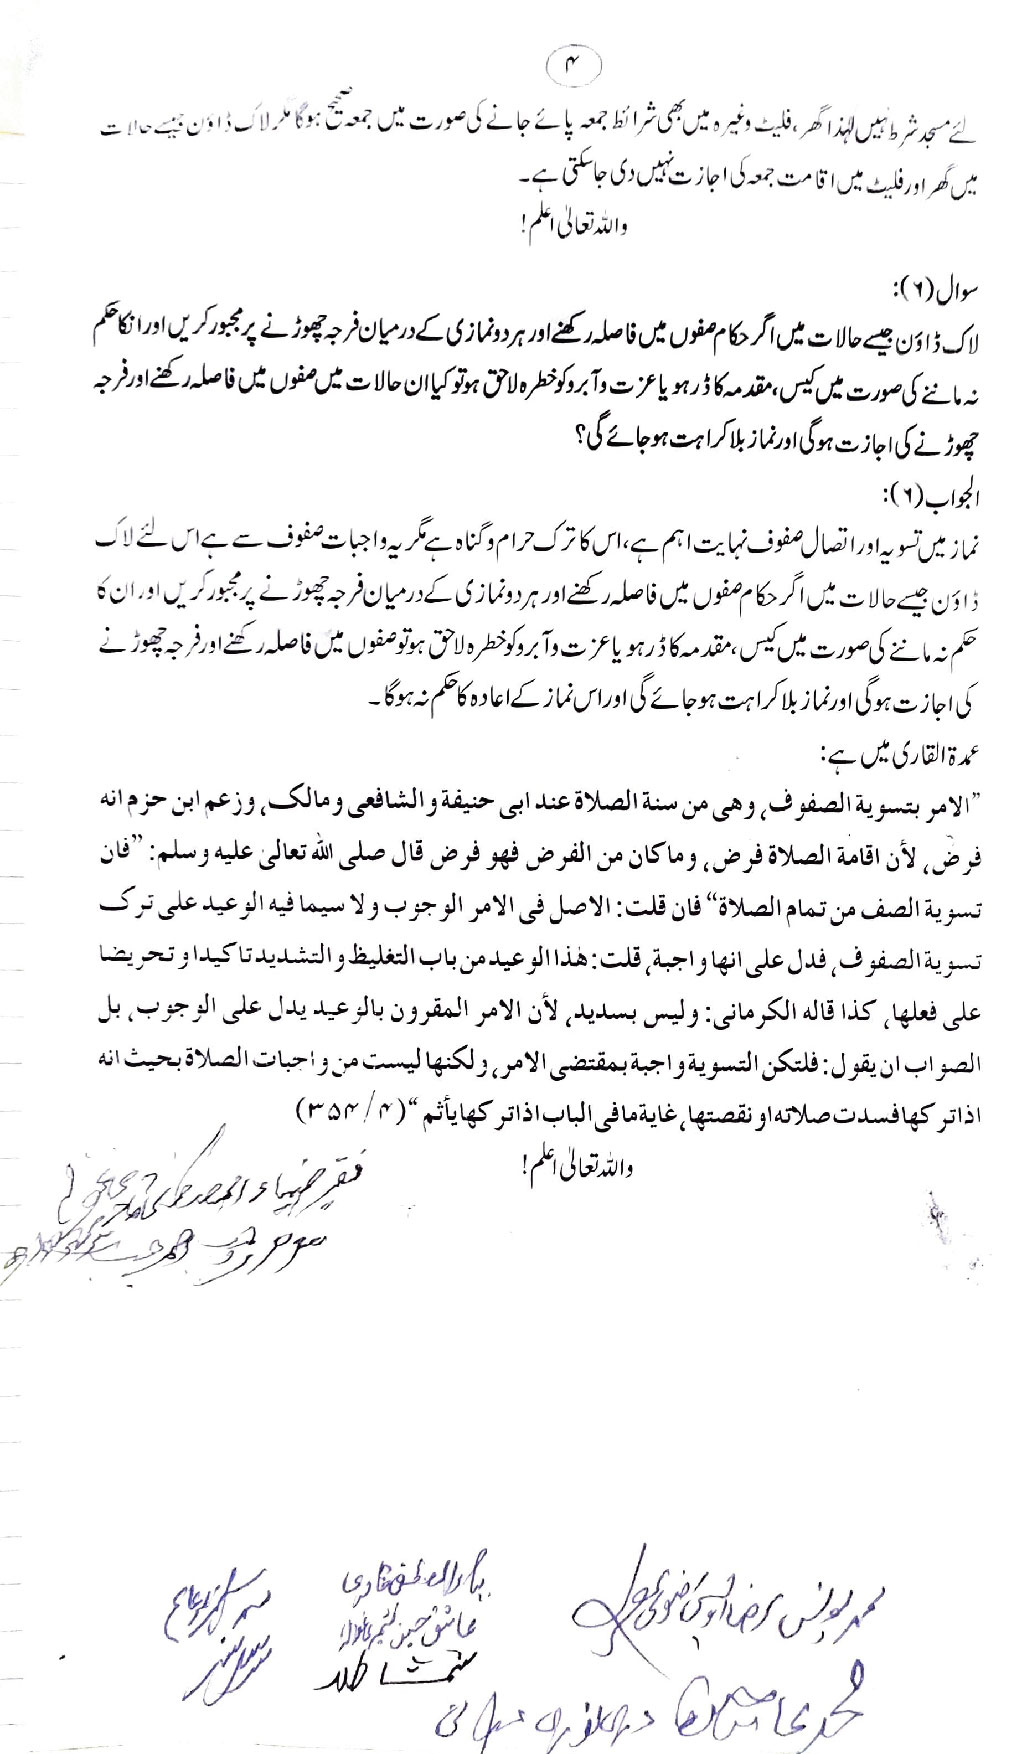 ۴
لئے مسجد شرط نہیں لہٰذا گھر، فلیٹ وغیرہ میں بھی شرائط جمعہ پائے جانے کی صورت میں جمعہ صحیح ہوگا مگر لاک ڈاؤن جیسے حالات
میں گھر اور فلیٹ میں اقامت جمعہ کی اجازت نہیں دی جاسکتی ہے۔
واللہ تعالیٰ اعلم!
سوال (۶):
لاک ڈاؤن جیسے حالات میں اگر حکام صفوں میں فاصلہ رکھنے اور ہر دو نمازی کے درمیان فرجہ چھوڑنے پر مجبور کریں اور انکا حکم
نہ ماننے کی صورت میں کیس، مقدمہ کا ڈر ہو یا عزت و آبرو کو خطرہ لاحق ہو تو کیا ان حالات میں صفوں میں فاصلہ رکھنے اور فرجہ
چھوڑنے کی اجازت ہوگی اور نماز بلا کراہت ہو جائے گی؟
الجواب (۶):
نماز میں تسویہ اور اتصال صفوف نہایت اہم ہے، اس کا ترک حرام و گناہ ہے مگر یہ واجبات صفوف سے ہے اس لئے لاک
ڈاؤن جیسے حالات میں اگر حکام صفوں میں فاصلہ رکھنے اور ہر دو نمازی کے درمیان فرجہ چھوڑنے پر مجبور کریں اور ان کا
حکم نہ ماننے کی صورت میں کیس، مقدمہ کا ڈر ہو یا عزت و آبرو کو خطرہ لاحق ہو تو صفوں میں فاصلہ رکھنے اور فرجہ چھوڑنے
کی اجازت ہوگی اور نماز بلا کراہت ہو جائے گی اور اس نماز کے اعادہ کا حکم نہ ہوگا۔
عمدۃ القاری میں ہے:
”الامر بتسوية الصفوف، وهى من سنة الصلاة عند ابى حنيفة و الشافعى و مالک، و زعم ابن حزم انه
فرض، لأن اقامة الصلاة فرض، و ما كان من الفرض فهو فرض قال صلى الله تعالىٰ عليه وسلم: ”فان
تسوية الصف من تمام الصلاة“ فان قلت: الاصل فى الامر الوجوب ولا سيما فيه الوعيد على ترک
تسوية الصفوف، فدل على انها واجبة، قلت: هذا الوعيد من باب التغليظ و التشديد تاكيدا و تحريضا
على فعلها، كذا قاله الكرمانى: وليس بسديد، لأن الامر المقرون بالوعيد يدل على الوجوب، بل
الصواب ان يقول: فلتكن التسوية واجبة بمقتضى الامر، ولكنها ليست من واجبات الصلاة بحيث انه
اذا تركها فسدت صلاته او نقصتها، غاية ما فى الباب اذا تركها يأثم“ (۴/۳۵۴)
واللہ تعالیٰ اعلم!
فقیر ضیاء المصطفیٰ